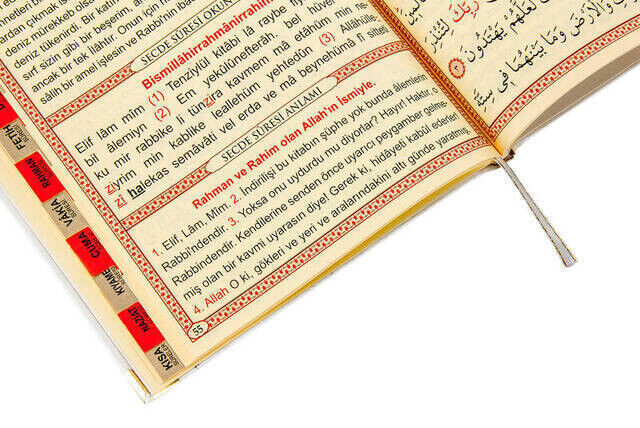 deniz mürekkep olsa
deniz tükenirdi. Bir katın
sırf sizin gibi bir beşerim, an
ancak bir tek ilâhtır. Onun için h
sâlih bir amel işlesin ve Rabbi'nin ibad
SECDE SÛRESİ OKUN
Bismillâhirrahmânirrahîm
Elif lâm mîm (1) Tenziylül kitâbi lâ raybe fi
bil âlemiyn (2) Em yekûlûnefterâh. bel hüve
ku mir rabbike li tünzira kavmem mâ etâhüm min ne
ziyrim min kablike leallehüm yehtedûn (3) Allâhülle-
zî halekas semâvâti vel erda ve mâ beynehümâ fî sitteti
SECDE SÛRESİ ANLAMI
Rahman ve Rahim olan Allah'ın ismiyle.
1. Elif, Lâm, Mîm. 2. İndirilişi bu kitabın şüphe yok bunda âlemlerin
Rabbi'ndendir. 3. Yoksa onu uydurdu mu diyorlar? Hayır! Haktır, o
Rabbindendir. Kendilerine senden önce uyarıcı peygamber gelme-
miş olan bir kavmi uyarasın diye! Gerek ki, hidâyeti kabûl ederler!
4. Allah O ki, gökleri ve yeri ve aralarındakini altı günde yaratmış,
55
FETİH
RAHMAN
VAKIA
CUMA
KIYAME
NAZİAT
KISA
SURELER
رَبِّكَ لِتُنْذِرَ
لَعَلَّهُمْ يَهْتَدُونَ
وَالْأَرْضَ وَمَا بَيْنَهُمَا فِي سِتَّةِ